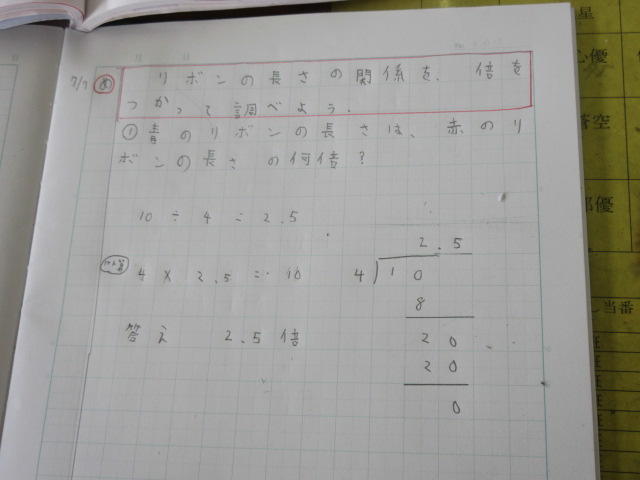 7/7 め リボンの長さの関係を、倍を
つかって調べよう。
①青のリボンの長さは、赤のリ
ボンの長さの何倍?
10÷4=2.5
4×2.5=10
答え 2.5倍
2.5
4)10
8
20
20
0
星
心優
蒼空
優
し当番